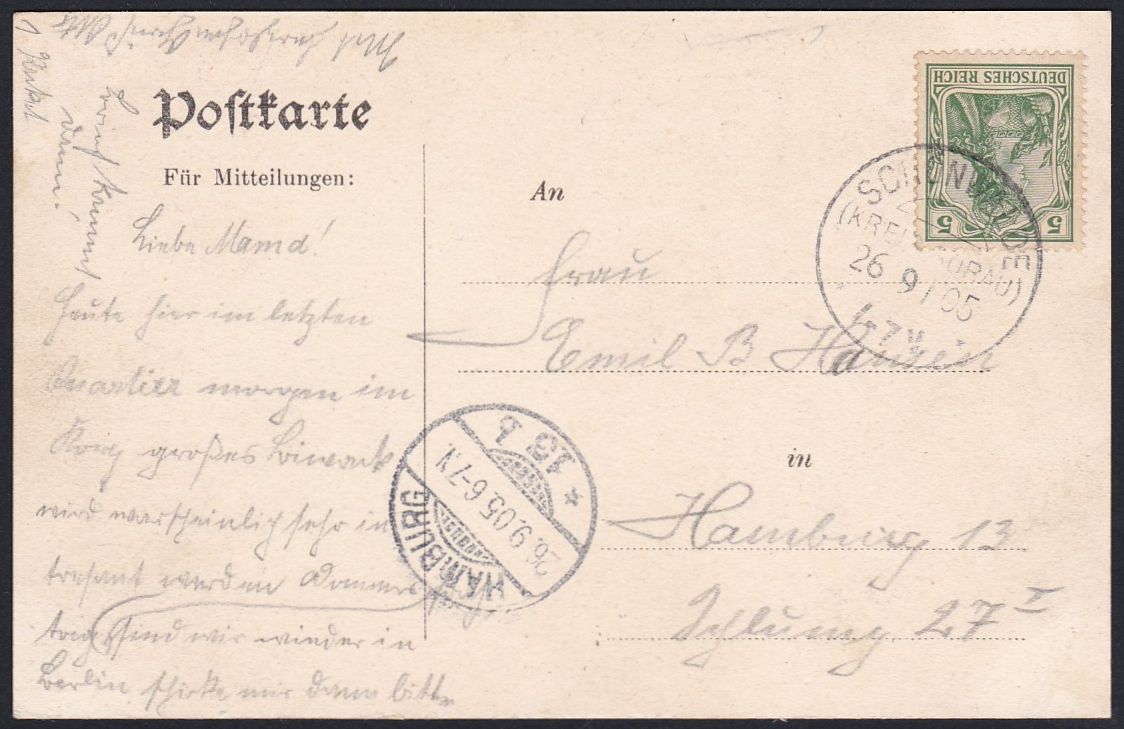 Postkarte
Für Mitteilungen:
Liebe Mama!
Heute hier im letzten
Quartier morgen im
großes Biwack
wird warscheinlich sehr in
tresant werden Donners
tag sind wir wieder in
Berlin schicke mir dann bitte
dann!
An
Frau
Emil B Hansen
in
Hamburg 13
Schlump 27 I
DEUTSCHES REICH
5 5
SCHÖNWALDE
(KREIS SORAU)
26 9 05
4-7 V
HAMBURG
26.9.05.6-7 N.
* 13 b